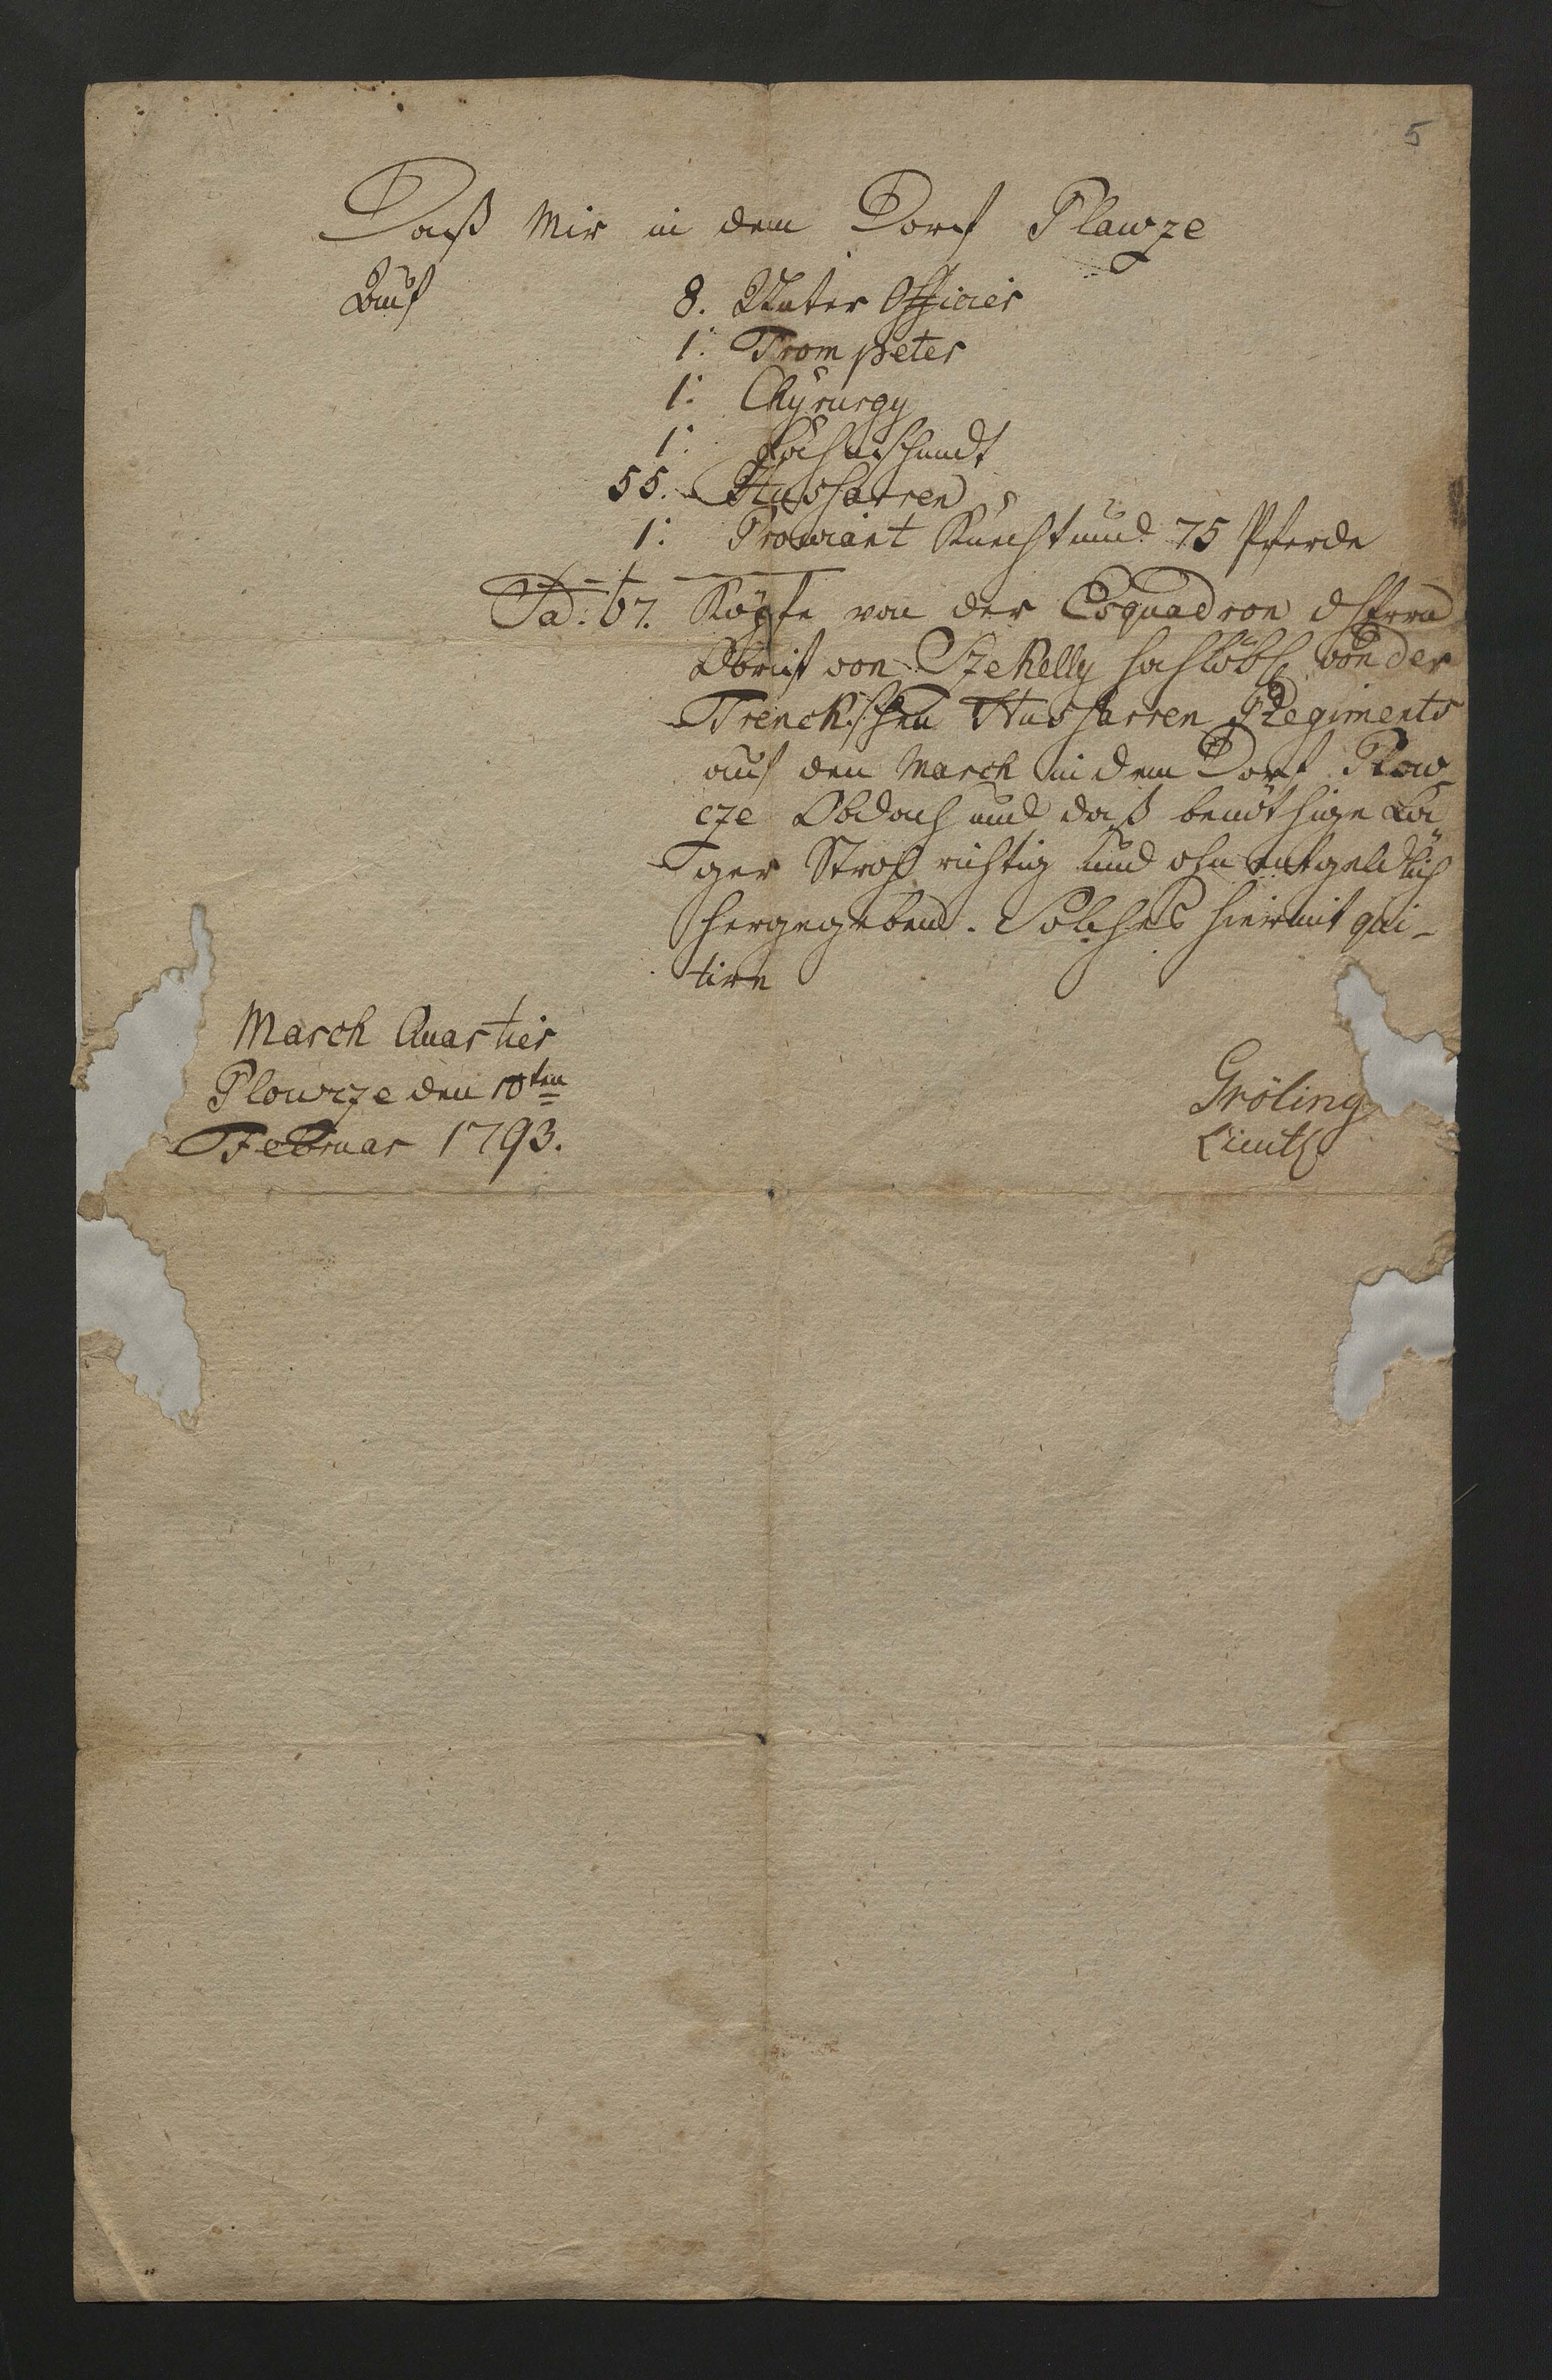 5
Daß Mir in dem Dorf Plawze
Auf 8. Unter Officier
1: Trompeter
1: Chyrurgy
1: Fahnschmidt
55. Hussarren
1: Prowiant Knecht und 75 Pferde
Sa: 67. Köpfe von der Esquadron d Herrn
Obrist von Szekelly hochlöbl von der
Trenckschen Hussarren Regiments
auf den March in dem Dorf Plow
cze Obdach und daß benöthige La
ger Stroh richtig und ohn entgeldlich
hergegeben. Solches hiermit qui-
tire
March Quartier
Plowcze den 10ten
Februar 1793.
Gröling
Lieut